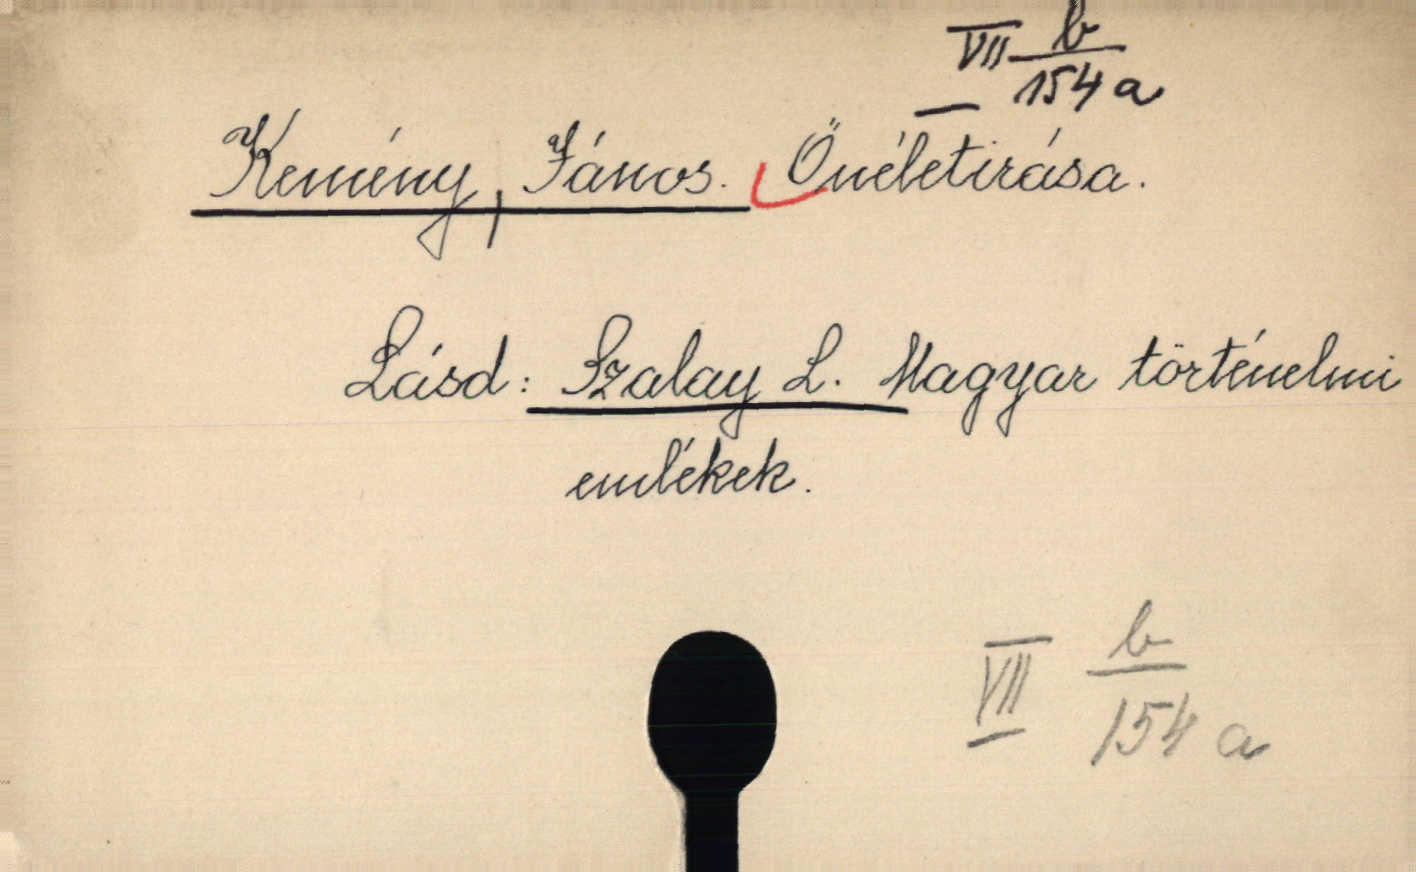 VII b
154 a
Kemény, János. Önéletirása.
Lásd: Szalay L. Magyar történelmi
emlékek.
VII b
154 a